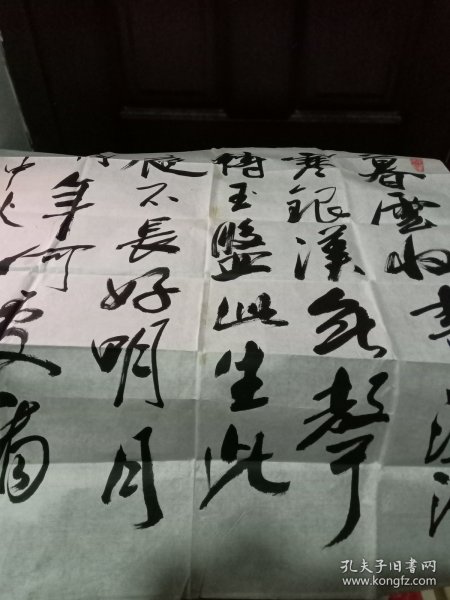 暮雲收盡溢清
寒銀漢無聲
轉玉盤此生此
夜不長好明月
明年何處看
中秋
孔夫子旧书网
www.kongfz.com